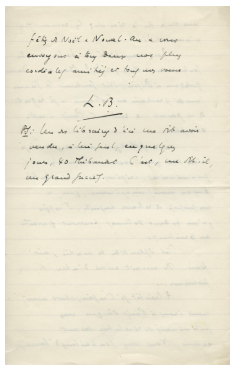 fêtes de Noël & Nouvel-An & vous
envoyons à tous deux nos plus
cordiales amitiés et tous nos vœux
L.B.
PS: Un des libraires d'ici me dit avoir
vendu, à lui seul, en quelques
jours, 40 Thibaudet. C'est, me dit-il,
un grand succès.